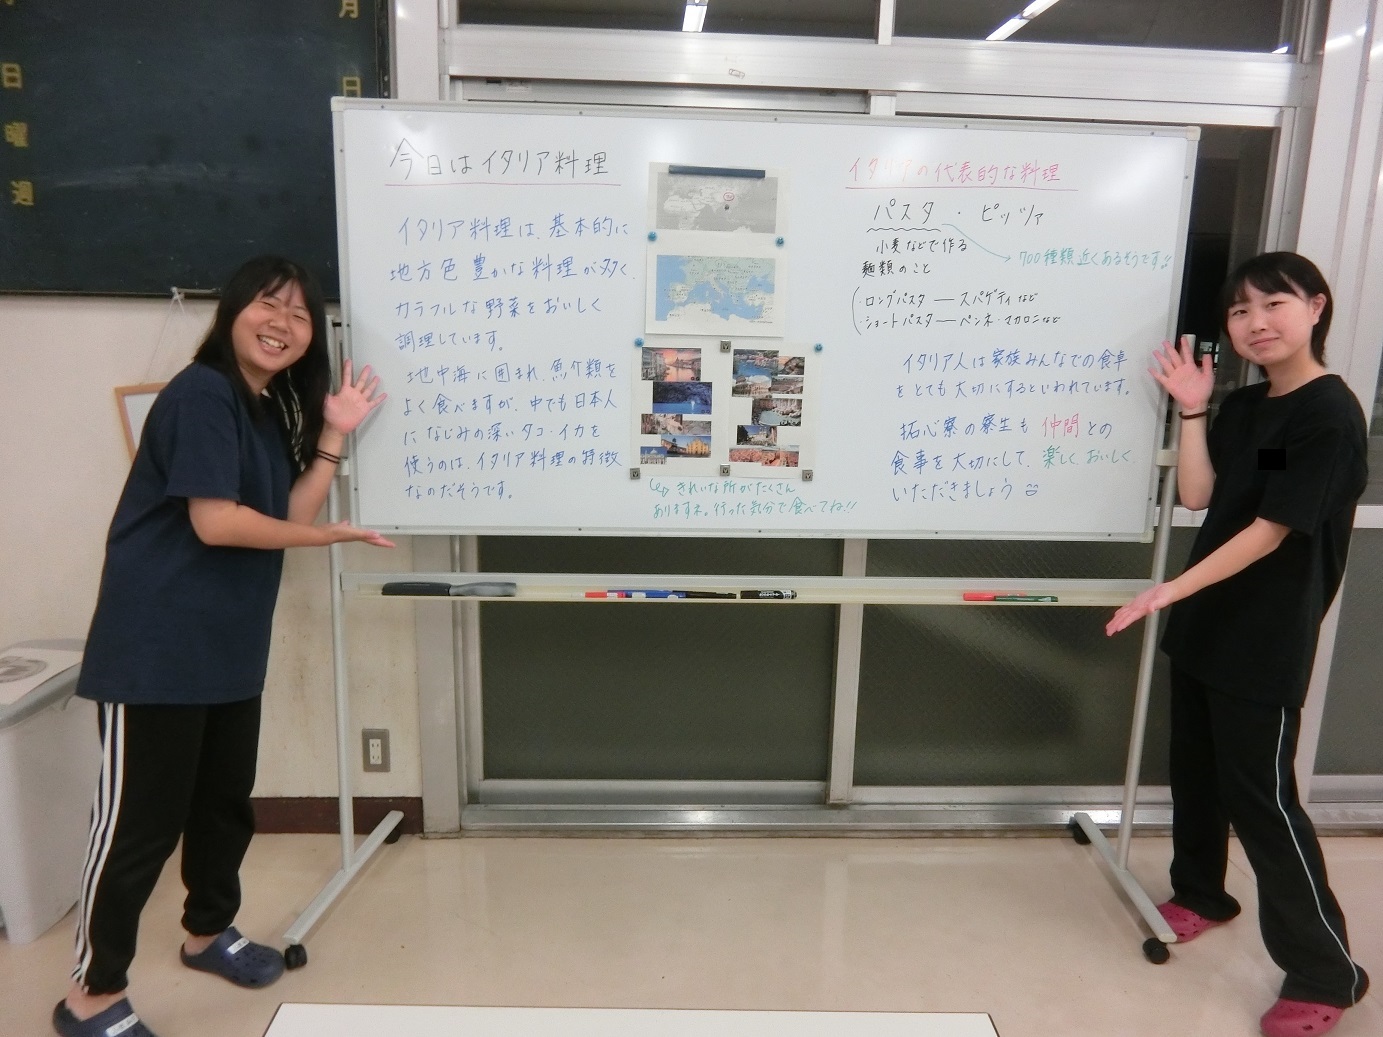 月
日
日
曜
週
今日はイタリア料理
イタリア料理は、基本的に
地方色豊かな料理が多く、
カラフルな野菜をおいしく
調理しています。
地中海に囲まれ、魚介類を
よく食べますが、中でも日本人
になじみの深いタコ・イカを
使うのは、イタリア料理の特徴
なのだそうです。
きれいな所がたくさん
ありますネ。行った気分で食べてね!!
イタリアの代表的な料理
パスタ・ピッツァ
小麦などで作る
麺類のこと
700種類近くあるそうです!!
・ロングパスタ ― スパゲティなど
・ショートパスタ ― ペンネ・マカロニなど
イタリア人は家族みんなでの食卓
をとても大切にするといわれています。
拓心寮の寮生も仲間との
食事を大切にして、楽しくおいしく
いただきましょう